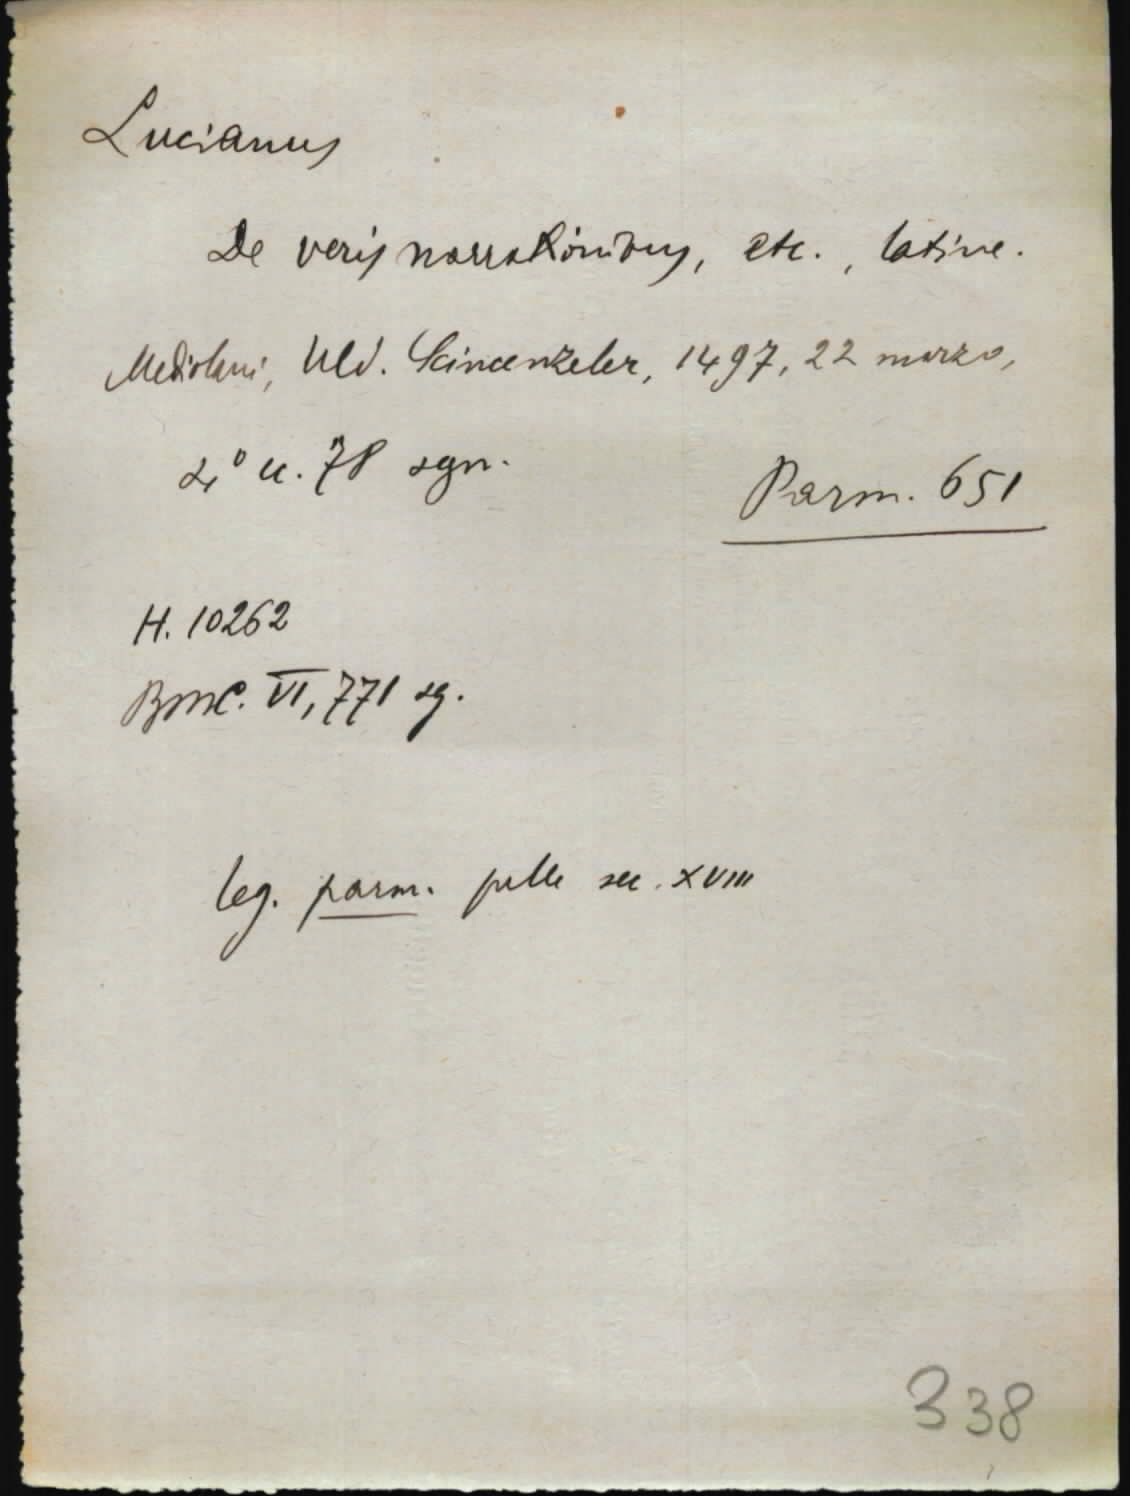 Lucianus
De veris narrationibus, etc., latine.
Mediolani, Uld. Scinzenzeler, 1497, 22 marzo,
4° cc. 78 sgn.
Parm. 651
H. 10262
BMC. VI, 771 sg.
leg. parm. pelle sec. XVIII
338